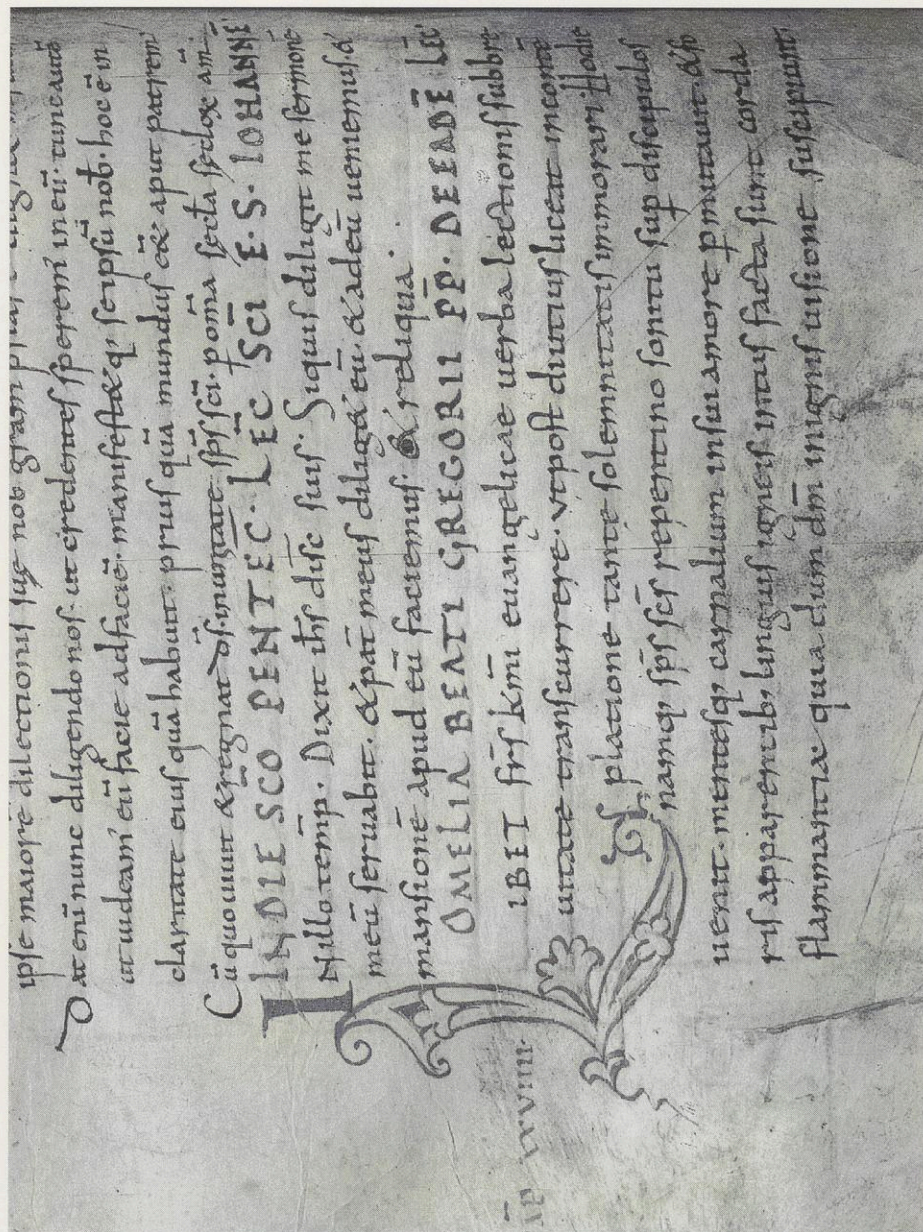 ipse maiorē dilectionis suę nob gratiam
Dat eni nunc diligendo nos. ut credentes speremꝰ in eū. tunc autē
ut uideamꝰ eū facie ad faciē. manifestat q; seipsū nob. hoc ē in
claritate eius quā habuit. prius quā mundus eēt aput patrem
Cū quo uiuit & regnat d̄s. in unitate sp̄s sc̄i. p om̄a sęcl̄a sęclo℞ am̄.
IN DIE SCO PENTEC. LEC̄ SCĪ E. S. IOHANNĒ
IN illo temp. Dixit ih̄s disc̄ suis. Siquis diligit me sermonē
meū seruabit. & pat̄ meus diliget eū. & ad eū ueniemus. &
mansionē apud eū faciemus & reliqua.
OMELIA BEATI GREGORII P̄P. DE EADĒ LEC̄
LIBET fr̄s km̄i euangelicae uerba lectionis sub breui
uitate transcurrere. ut post diutius liceat in contē
platione tantę solemnitatis immorari. Hodie
namq; sp̄s sc̄s repentino sonitu sup̄ discipulos
uenit. mentesq; carnalium in sui amore p̄mutauit. & fo
ris apparentib; linguis igneis intus facta sunt corda
flammantia. quia dum dm̄ in ignis uisione susceperunt.